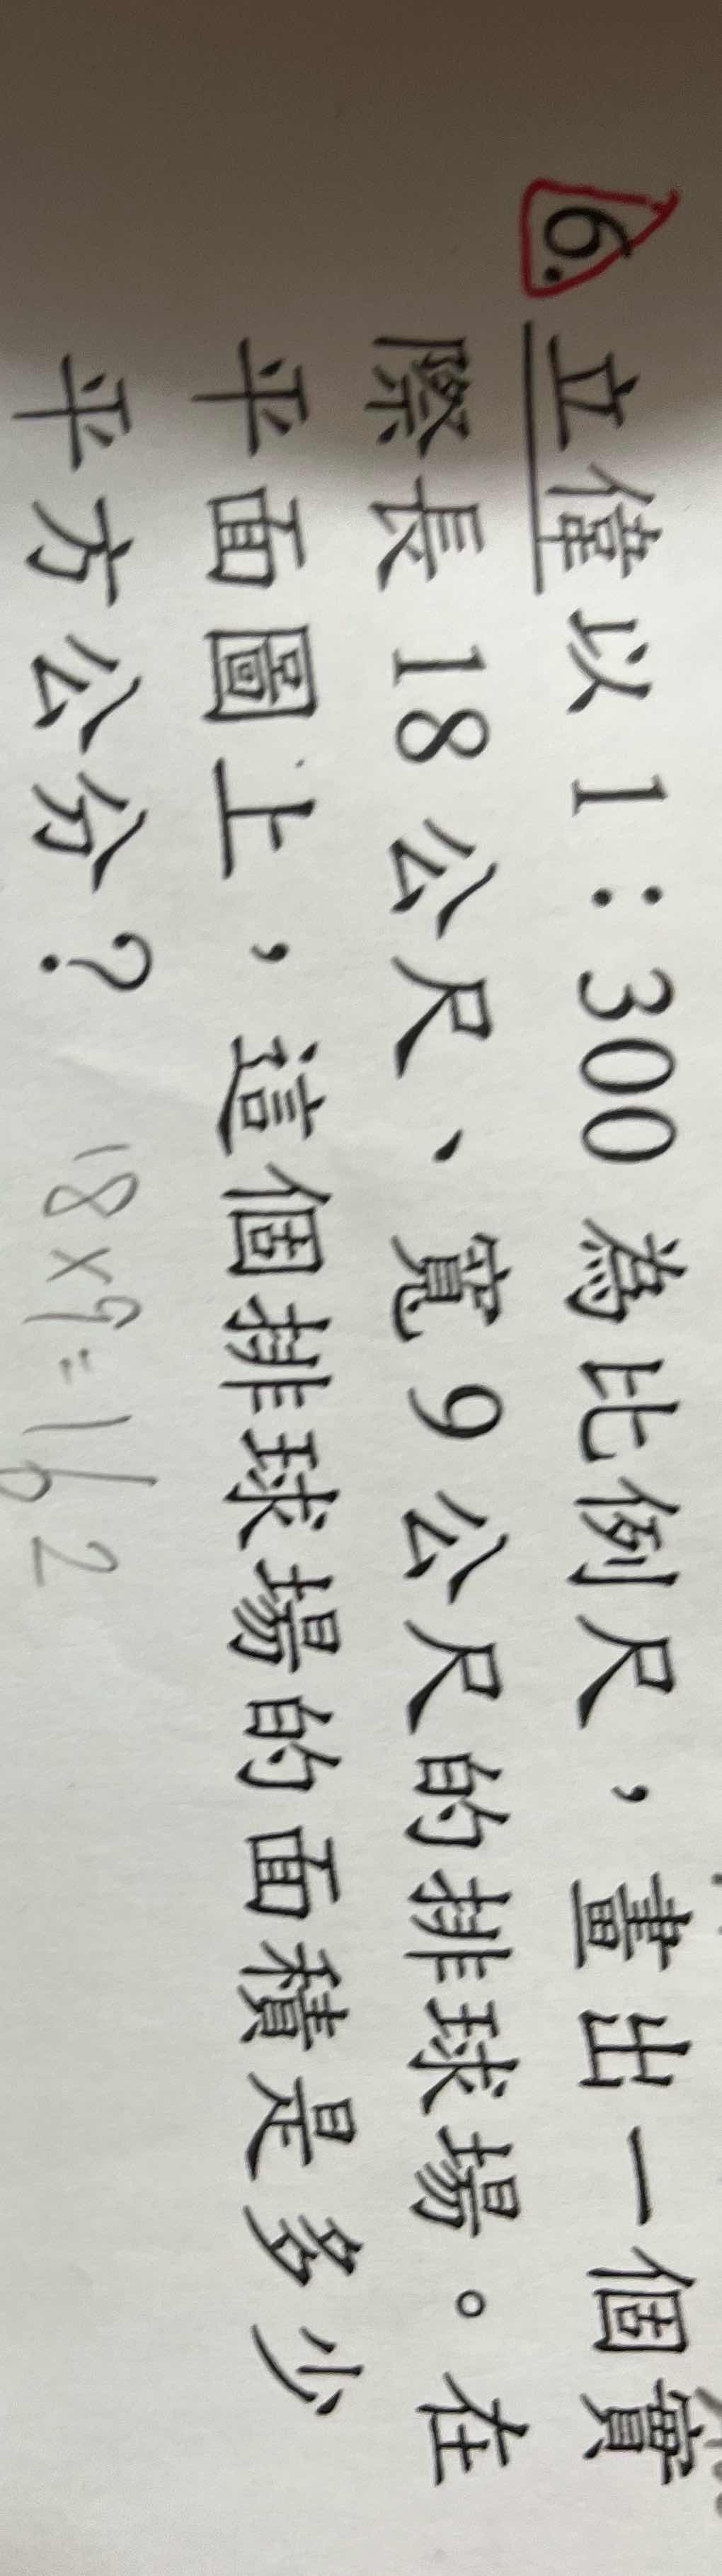 6. 立偉以 1：300 為比例尺，畫出一個實
際長 18 公尺、寬 9 公尺的排球場。在
平面圖上，這個排球場的面積是多少
平方公分？ 18×9=162